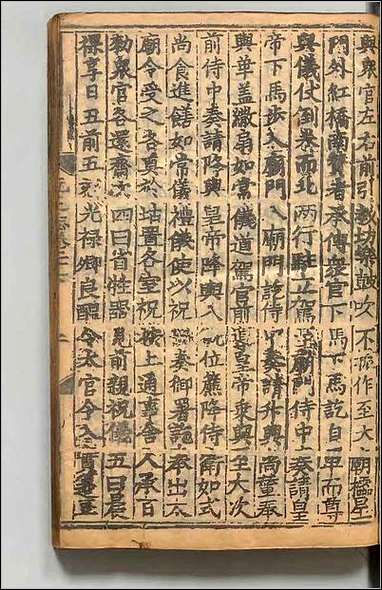 與衆官左右前引教坊樂鼓吹不振作至太廟櫺星
門外紅橋南贊者承傳衆官下馬下馬訖自卑而尊
與儀仗倒卷而北兩行駐立駕至廟門侍中奏請皇
帝下馬步入廟門入廟門訖侍中奏請升輿尚輦奉
輿華蓋繖扇如常儀導駕官前導皇帝乘輿至大次
前侍中奏請降輿皇帝降輿入就位簾降侍衛如式
尚食進饍如常儀禮儀使以祝奏御署訖奉出太
廟令受之各奠於坫置各室祝按上通事舍人承旨
勑衆官各還齋次四曰省牲器見前親祝儀五曰晨
祼享日丑前五刻光祿卿良醞令太官令入實籩豆